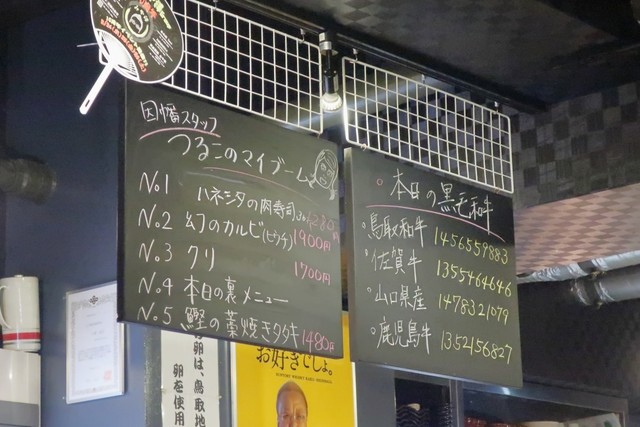 因幡スタッフ
つるこのマイブーム
No.1 ハネシタの肉寿司 1280円
No.2 幻のカルビ(ヒウチ) 1900円
No.3 クリ 1700円
No.4 本日の裏メニュー
No.5 鰹の藁焼きタタキ 1480円
本日の黒毛和牛
・鳥取和牛 1456559883
・佐賀牛 1355464646
・山口県産 1478321079
・鹿児島牛 1352156827
お好きでしょ。
卵は、鳥取地
卵を使用